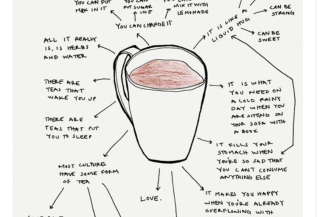 YOU CAN PUT
MILK IN IT
YOU CAN
PUT SUGAR
IN IT
MIX IT WITH
LEMONADE
YOU CAN CHANGE IT
IT IS LIKE A
LIQUID HUG
CAN BE
STRONG
CAN BE
SWEET
ALL IT REALLY
IS, IS HERBS
AND WATER
THERE ARE
TEAS THAT
WAKE YOU UP
THERE ARE
TEAS THAT PUT
YOU TO SLEEP
MOST CULTURES
HAVE SOME FORM
OF TEA
LOVE.
IT IS WHAT
YOU NEED ON
A COLD RAINY
DAY WHEN YOU
ARE SITTING ON
YOUR SOFA WITH
A BOOK
IT FILLS YOUR
STOMACH WHEN
YOU'RE SO SAD THAT
YOU CAN'T CONSUME
ANYTHING ELSE
IT MAKES YOU HAPPY
WHEN YOU'RE ALREADY
OVERFLOWING WITH